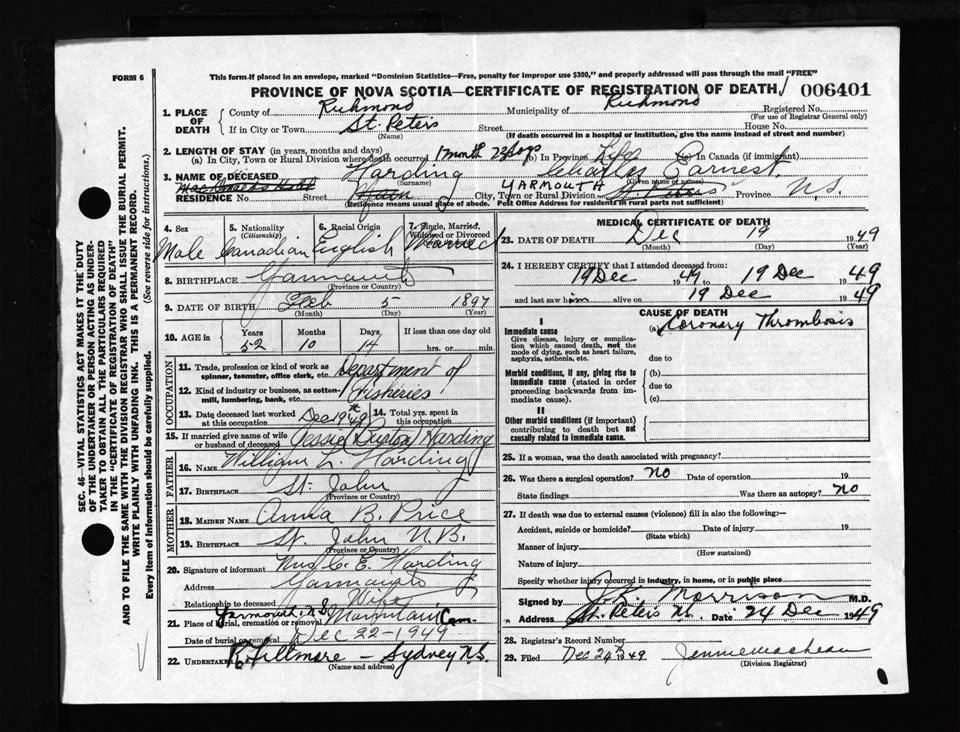 FORM 6
This form if placed in an envelope, marked "Dominion Statistics—Free, penalty for improper use $300," and properly addressed will pass through the mail "FREE"
PROVINCE OF NOVA SCOTIA—CERTIFICATE OF REGISTRATION OF DEATH 006401
1. PLACE OF DEATH
County of Richmond Municipality of Richmond Registered No.
(For use of Registrar General only)
If in City or Town St. Peters Street House No.
(Name) (If death occurred in a hospital or institution, give the name instead of street and number)
2. LENGTH OF STAY (in years, months and days)
(a) In City, Town or Rural Division where death occurred 1 month 23 days (b) In Province Life (c) In Canada (if immigrant)
3. NAME OF DECEASED Harding Charles Earnest
(Surname) (Given name or names)
RESIDENCE No. Street Main City, Town or Rural Division YARMOUTH Province N.S.
(Residence means usual place of abode. Post Office Address for residents in rural parts not sufficient)
4. Sex Male
5. Nationality (Citizenship) Canadian
6. Racial Origin English
7. Single, Married, Widowed or Divorced Married
8. BIRTHPLACE Yarmouth
(Province or Country)
9. DATE OF BIRTH Feb 5 1897
(Month) (Day) (Year)
10. AGE in Years Months Days If less than one day old
52 10 14 hrs. or min.
OCCUPATION
11. Trade, profession or kind of work as spinner, teamster, office clerk, etc. Department of
12. Kind of industry or business, as cotton-mill, lumbering, bank, etc. Fisheries
13. Date deceased last worked at this occupation Dec 19th 49
14. Total yrs. spent in this occupation
15. If married give name of wife or husband of deceased Jessie Harding
FATHER
16. NAME William L. Harding
17. BIRTHPLACE St. John
(Province or Country)
MOTHER
18. MAIDEN NAME Anna B. Price
19. BIRTHPLACE St. John N.B.
(Province or Country)
20. Signature of informant Mrs. C. E. Harding
Address Yarmouth
Relationship to deceased Wife
21. Place of burial, cremation or removal Yarmouth N.S. Mountain Cem.
Date of burial or removal Dec 22-1949
22. Undertaker Fillmore - Sydney N.S.
(Name and address)
MEDICAL CERTIFICATE OF DEATH
23. DATE OF DEATH Dec 19 1949
(Month) (Day) (Year)
24. I HEREBY CERTIFY that I attended deceased from:
19 Dec 1949 to 19 Dec 1949
and last saw him alive on 19 Dec 1949
CAUSE OF DEATH
I
Immediate cause
Give disease, injury or complication which caused death, not the mode of dying, such as heart failure, asphyxia, asthenia, etc.
(a) Coronary Thrombosis
due to
Morbid conditions, if any, giving rise to immediate cause (stated in order proceeding backwards from immediate cause).
(b)
due to
(c)
II
Other morbid conditions (if important) contributing to death but not causally related to immediate cause.
25. If a woman, was the death associated with pregnancy?
26. Was there a surgical operation? no Date of operation 19
State findings Was there an autopsy? no
27. If death was due to external causes (violence) fill in also the following:—
Accident, suicide or homicide? Date of injury 19
(State which)
Manner of injury
(How sustained)
Nature of injury
Specify whether injury occurred in industry, in home, or in public place
Signed by Morrison M.D.
" Address St. Peters N.S. Date 24 Dec 1949
28. Registrar's Record Number
29. Filed Dec 24th 1949 Jennie
(Division Registrar)
SEC. 46—VITAL STATISTICS ACT MAKES IT THE DUTY
OF THE UNDERTAKER OR PERSON ACTING AS UNDER-
TAKER TO OBTAIN ALL THE PARTICULARS REQUIRED
IN THE "CERTIFICATE OF REGISTRATION OF DEATH"
AND TO FILE THE SAME WITH THE DIVISION REGISTRAR WHO SHALL ISSUE THE BURIAL PERMIT.
WRITE PLAINLY WITH UNFADING INK. THIS IS A PERMANENT RECORD.
Every item of information should be carefully supplied. (See reverse side for instructions.)